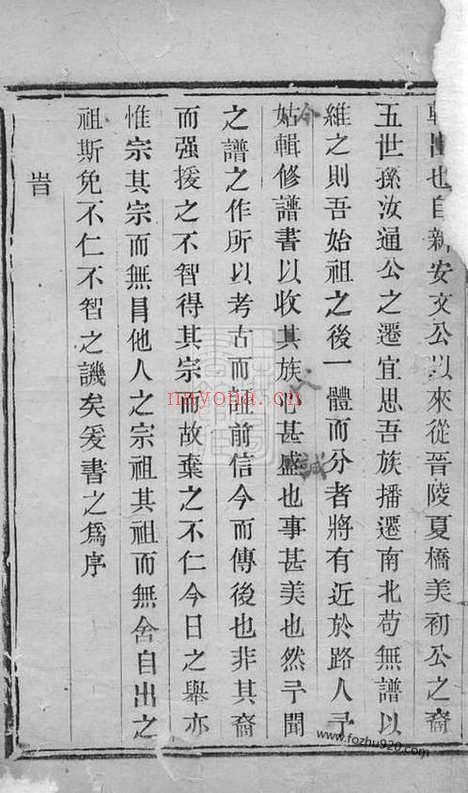 也自新安文公以來從晉陵夏橋美初公之裔
五世孫汝通公之遷宜思吾族播遷南北苟無譜以
維之則吾始祖之後一體而分者將有近於路人予
今
姑輯修譜書以收其族心甚盛也事甚美也然予聞
之譜之作所以考古而証前信今而傳後也非其裔
而强援之不智得其宗而故棄之不仁今日之舉亦
惟宗其宗而無冐他人之宗祖其祖而無舍自出之
祖斯免不仁不智之譏矣爰書之爲序
旹
nayona.cn
www.fozhu920.com